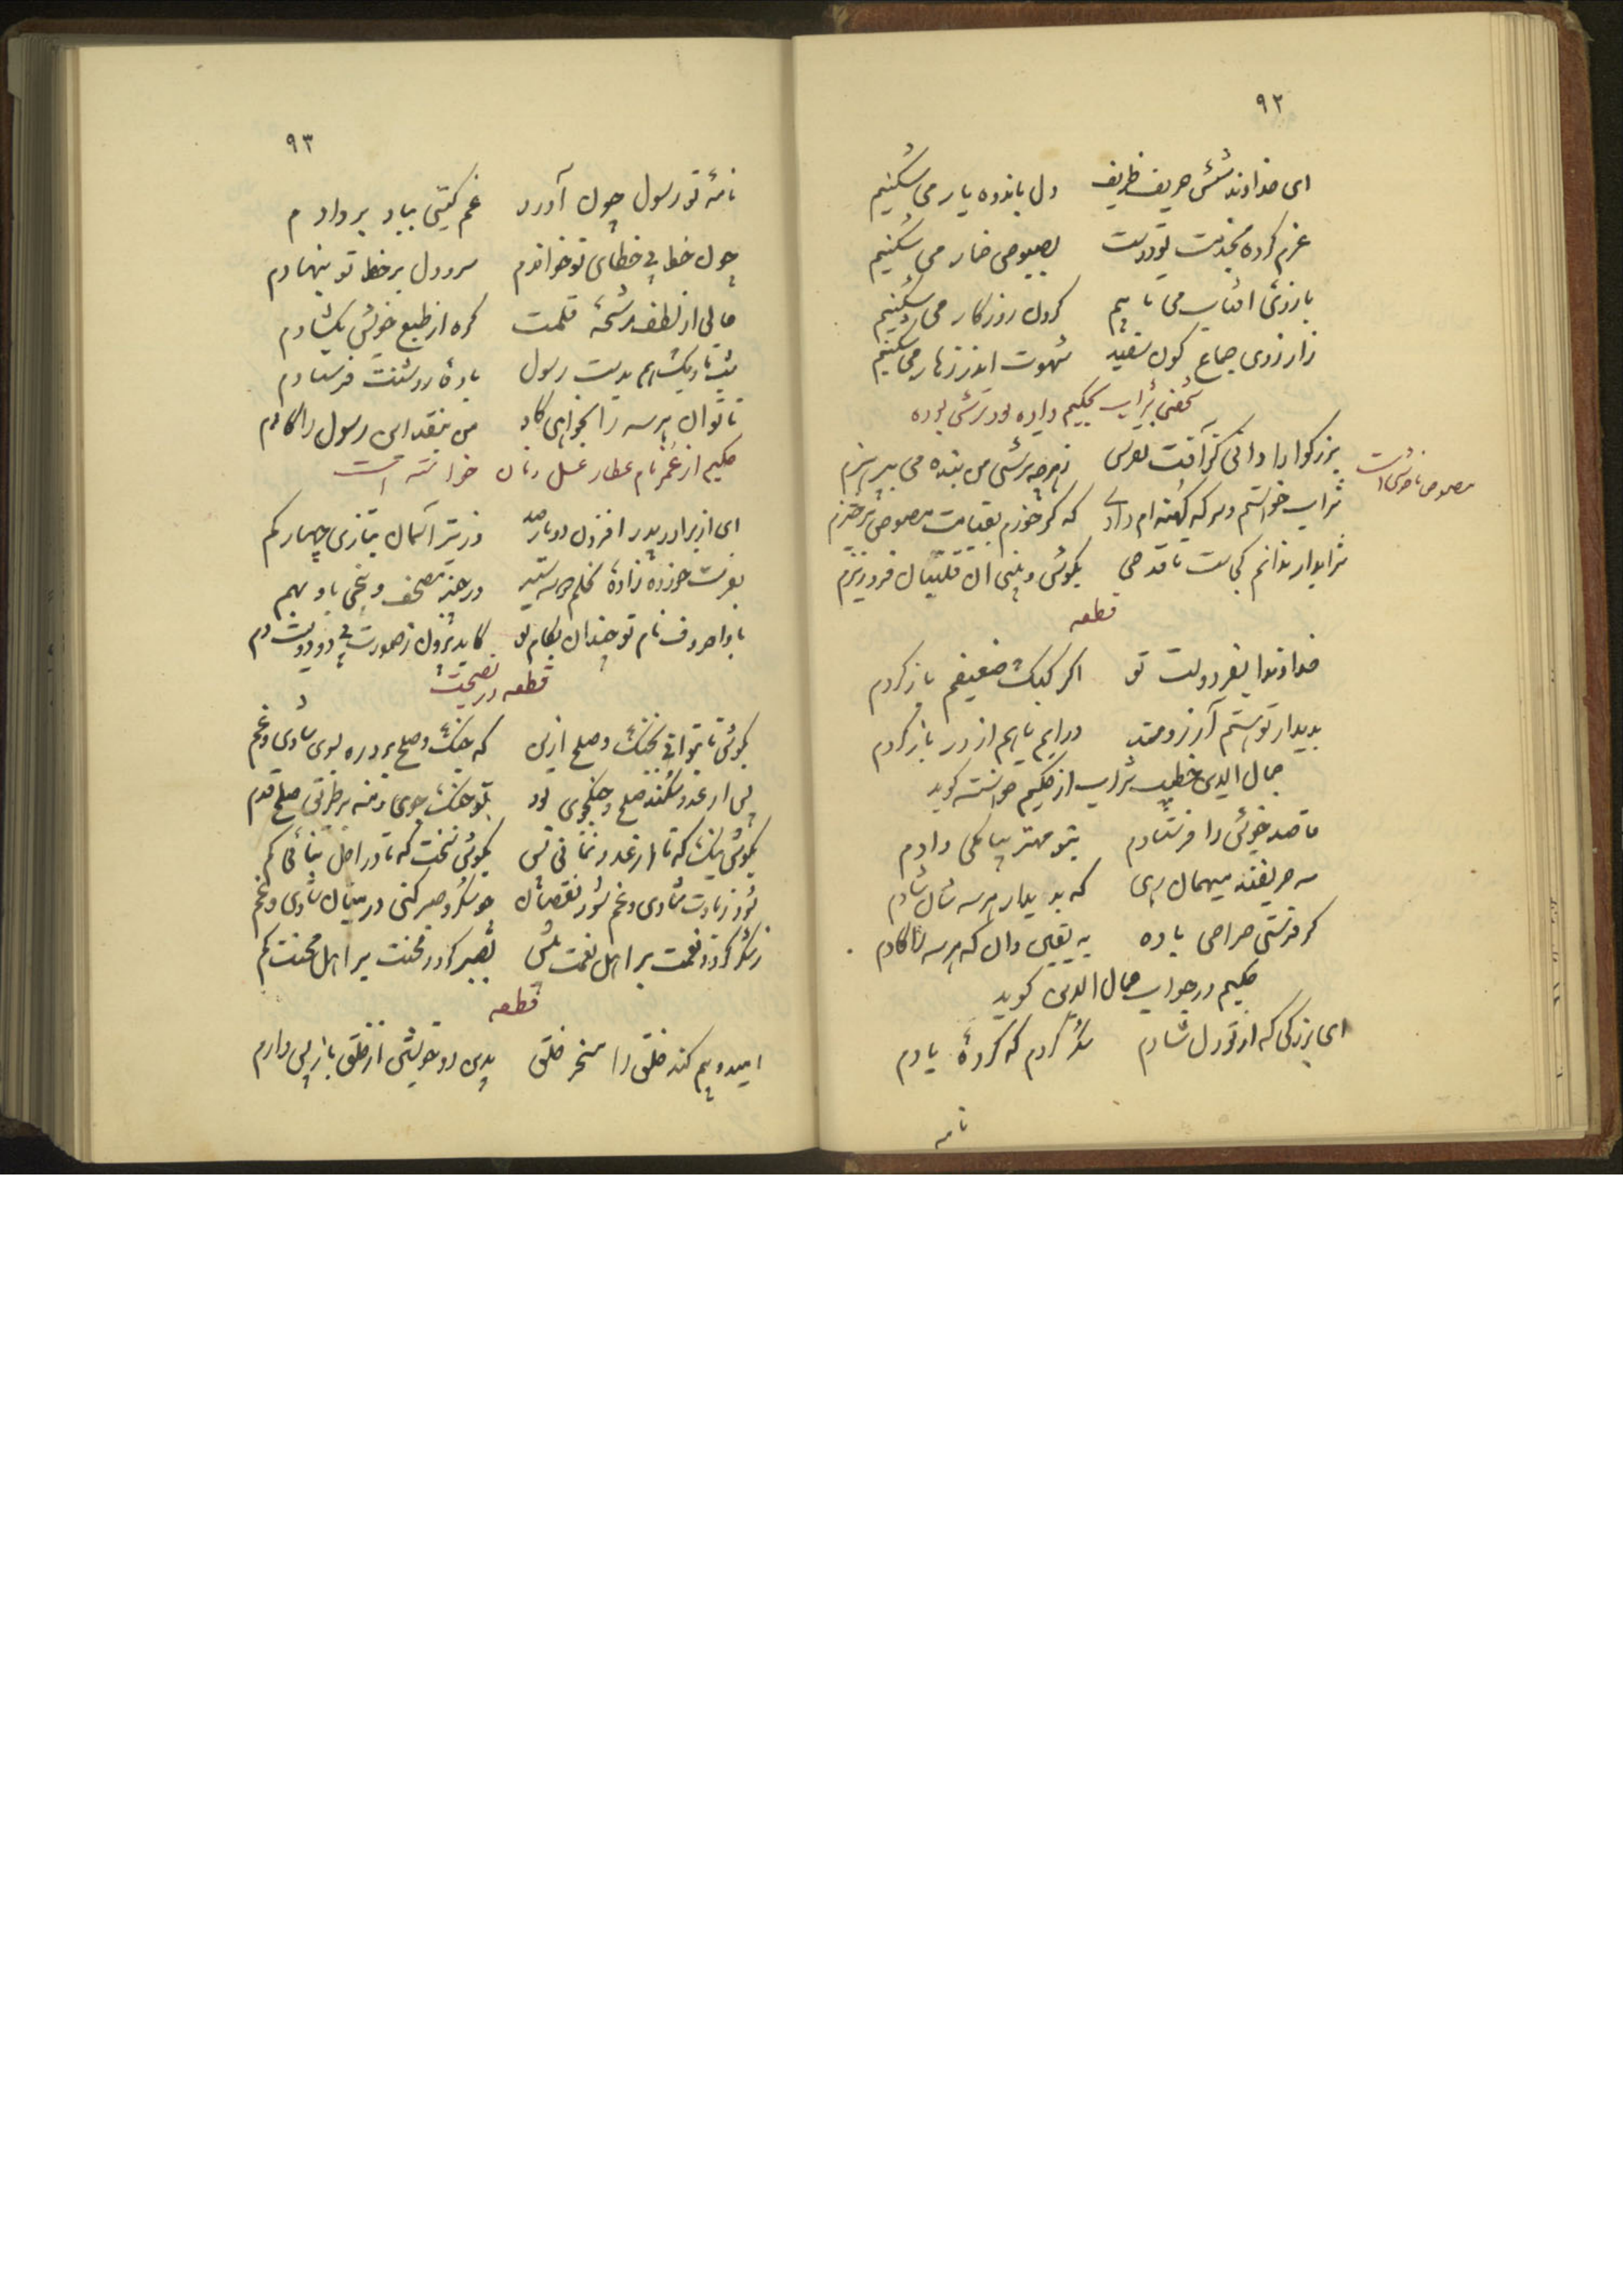 ٩٢
ای خداوند شش حریف ظریف دل باندوه یار می شکنیم
عزم کرده بخدمت تو درست بصبوحی خمار می شکنیم
بازوی افتاب می تابیم گردن روزگار می شکنیم
زارزوی جماع کون سفید شهوت اندر ازار می شکنیم
شخصی شراب بحکیم داده بود ترشی بوده
بزرکوارا دانی کز آفت نقرس زهرچه ترشی من بنده می بپرهیزم
شراب خواستم و سرکه کهنه ام دادی که گر خورم بقیامت مصوص برخیزم
مصوص ناخوشی است
شرابدار ندانم کجاست تا قدحی بگوش و بینی ان قلتبان فروریزم
قطعه
خداوندا بفر دولت تو اگر کبک ضعیفم باز کردم
بدیدار توستم آرزومند درایم یا هم از در باز کردم
جمال الدین خطیب شراب از حکیم خواسته کوید
قاصد خویش را فرستادم بتو مهتر پیامکی دادم
سه حریفند میهمان رهی که بدیدار هرسه شان شادم
کر فرستی صراحی باده به یقین دان که هرسه را کادم
حکیم در جواب جمال الدین کوید
ای بزرکی که از تو دل شادم شکر کردم که کردهٔ یادم
نامه
٩٣
نامهٔ تو رسول چون آورد غم کیتی بباد بردادم
چون خط بی خطای تو خواندم سر و دل بر خط تو بنهادم
حالی از لطف رشحهٔ قلمت کره از طبع خویش بکشادم
شب تاریک هم بدست رسول بادهٔ روشنت فرستادم
تا تو ان هرسه را بخواهی کاد من بنقد این رسول را کادم
حکیم از عمر نام عطار عسل و نان خواسته است
ای از برادر و پدر افزون دوبار صد وز تیر آسمان بتازی چهار کم
بفرست خورده زادهٔ نحلم
با واحروف نام تو چندان بکام تو
قطعه در نصیحت
بکوش تا بتوانی بجنک و صلح ازنی که جنک و صلح برد ره بسوی شادی و غم
پس ار عدو شکند صلح و جنکجوی بود تو جنک جوی و منه بر طریق صلح قدم
بکوش نیک که تا از عدو نمانی پس بکوش سخت که تا در اجل نیائی کم
شود زیادت شادی و غم شود نقصان چو شکر و صبر کنی در میان شادی و غم
ز شکر کردد نعمت بر اهل نعمت بیش بصبر کردد محنت بر اهل محنت کم
قطعه
امید و بیم کند خلق را مسخر خلق بدین دو خویشتن از خلق باز پس دارم